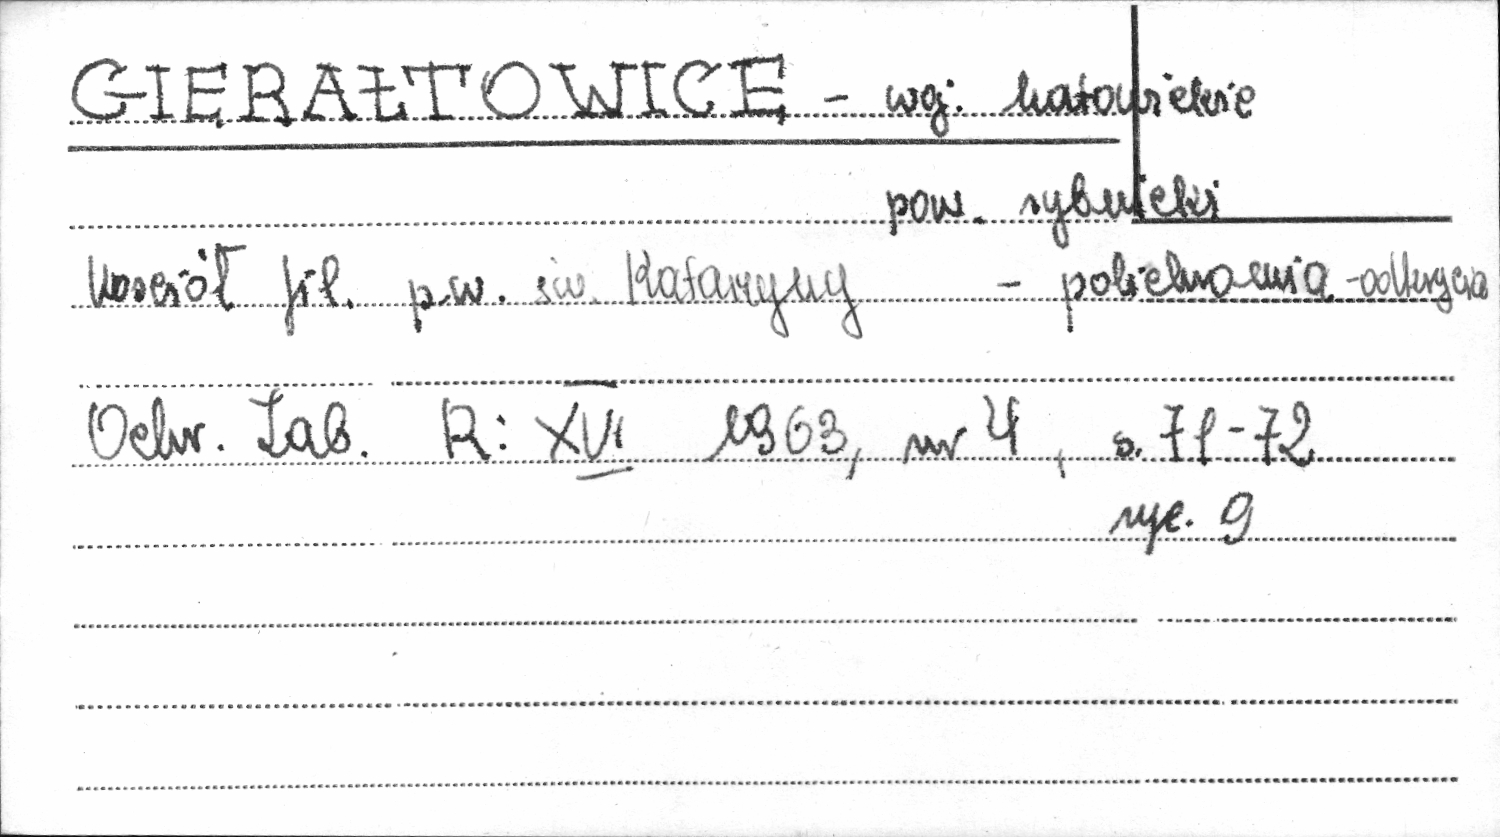 GIERAŁTOWICE - woj. katowickie
pow. rybnicki
Kościół fil. p.w. św. Katarzyny - polichromia - odkrycia
Ochr. Zab. R: XVI 1963, nr 4, s. 71-72
ryc. 9